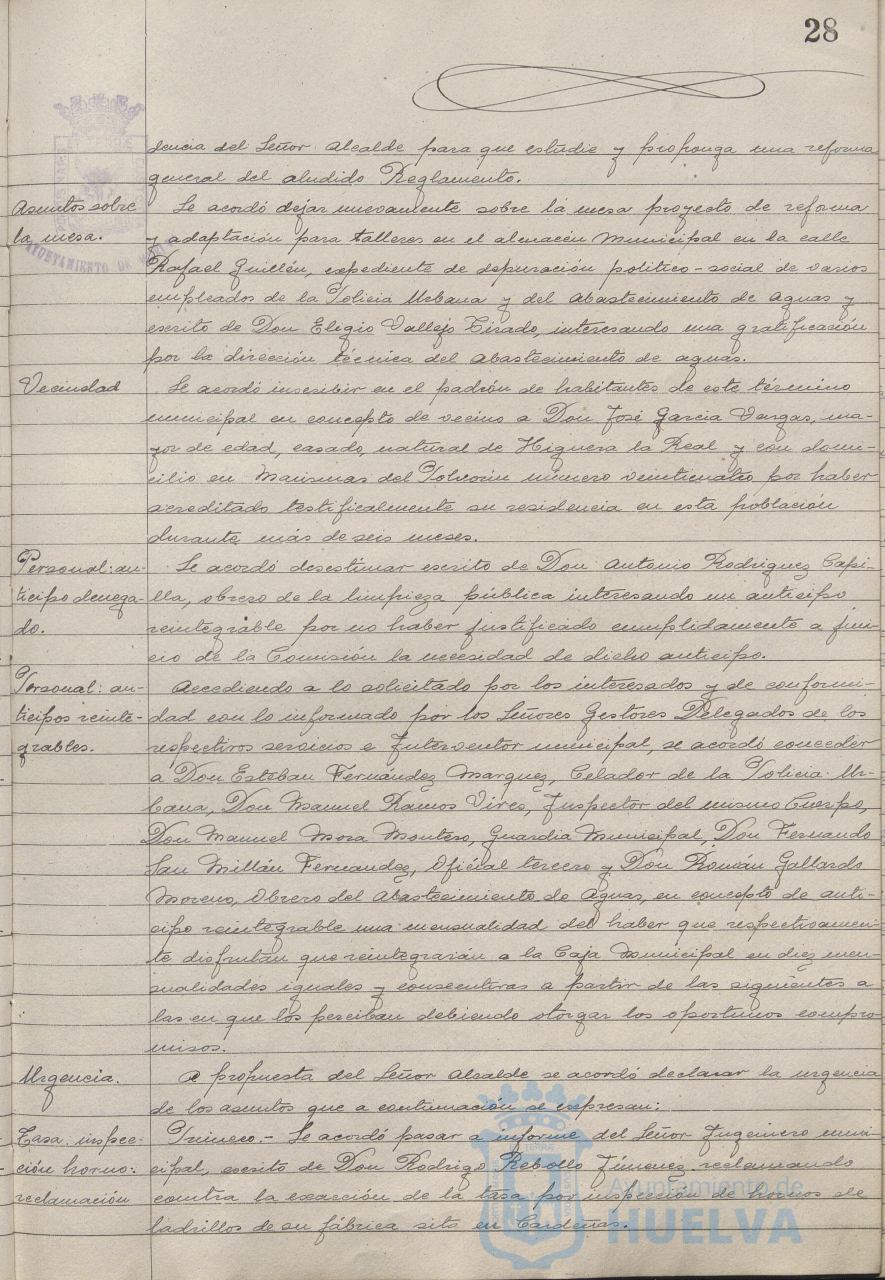 28
dencia del Señor Alcalde para que estudie y proponga una reforma
general del aludido Reglamento.
Asuntos sobre
la mesa.
Se acordó dejar nuevamente sobre la mesa proyecto de reforma
y adaptación para talleres en el almacén Municipal en la calle
Rafael Guillén, expediente de depuración politico-social de varios
empleados de la Policia Urbana y del Abastecimiento de Aguas y
escrito de Don Eligio Vallejo Tirado, interesando una gratificación
por la dirección técnica del Abastecimiento de aguas.
Vecindad
Se acordó inscribir en el padrón de habitantes de este término
municipal en concepto de vecino a Don José Garcia Vargas, ma-
yor de edad, casado, natural de Higuera la Real y con domi-
cilio en Marismas del Polvorin número veinticuatro por haber
acreditado testificalmente su residencia en esta población
durante más de seis meses.
Personal: an-
ticipo denega-
do.
Se acordó desestimar escrito de Don Antonio Rodriguez Capi-
lla, obrero de la limpieza pública interesando un anticipo
reintegrable por no haber justificado cumplidamente a jui-
cio de la Comisión la necesidad de dicho anticipo.
Personal: an-
ticipos reinte-
grables.
Accediendo a lo solicitado por los interesados y de conformi-
dad con lo informado por los Señores Gestores Delegados de los
respectivos servicios e Interventor municipal, se acordó conceder
a Don Esteban Fernández Marquez, Celador de la Policia Ur-
bana, Don Manuel Ramos Vires, Inspector del mismo Cuerpo,
Don Manuel Mora Montero, Guardia Municipal, Don Fernando
San Millán Fernandez, Oficial tercero y Don Román Gallardo
Moreno, Obrero del Abastecimiento de Aguas, en concepto de anti-
cipo reintegrable una mensualidad del haber que respectivamen-
te disfrutan que reintegrarán a la Caja Municipal en diez men-
sualidades iguales y consecutivas a partir de las siguientes a
las en que los perciban debiendo otorgar los oportunos compro-
misos.
Urgencia.
A propuesta del Señor Alcalde se acordó declarar la urgencia
de los asuntos que a continuación se expresan:
Tasa inspec-
ción horno:
reclamación
Primero.- Se acordó pasar a informe del Señor Ingeniero muni-
cipal, escrito de Don Rodrigo Rebollo Jimenez reclamando
contra la exacción de la tasa por inspección de hornos de
ladrillos de su fábrica sita en Cardeñas.
AYUNTAMIENTO DE
Ayuntamiento de
HUELVA